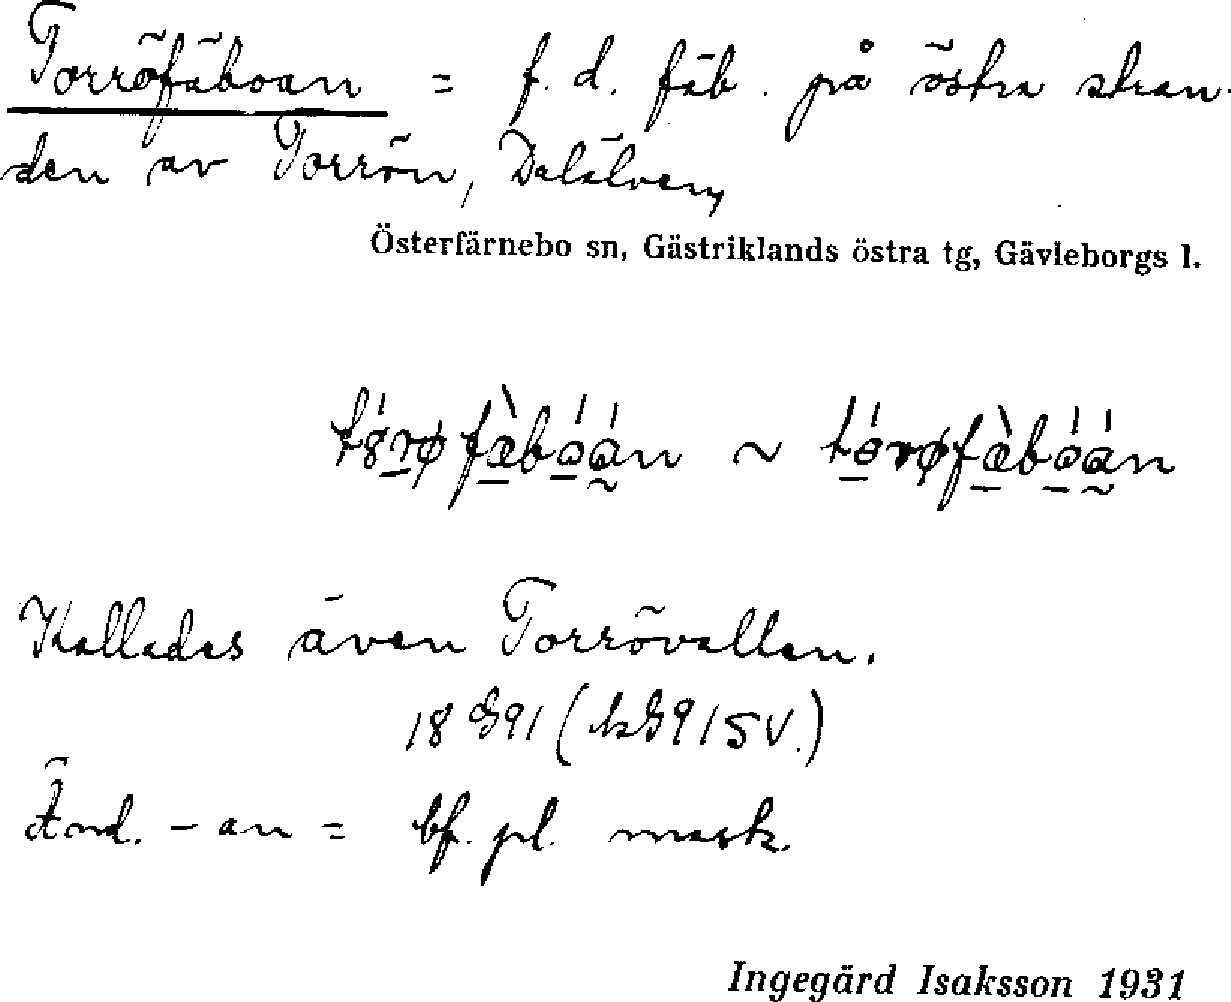 Torröfäboan = f. d. fäb. på östra stran-
den av Torrön, Dalälven,
Österfärnebo sn, Gästriklands östra tg, Gävleborgs l.
Kallades även Torrövallen.
Änd. -an = bf. pl. mask.
Ingegärd Isaksson 1931